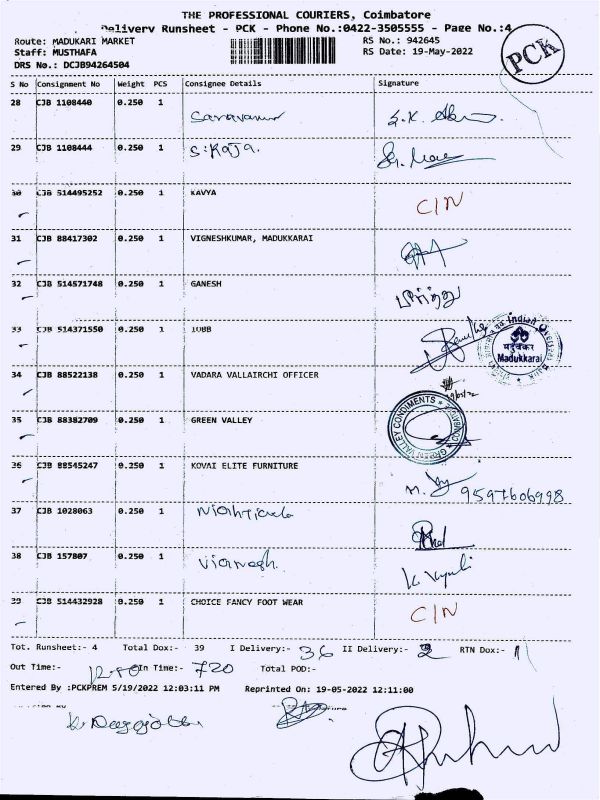 THE PROFESSIONAL COURIERS, Coimbatore
Delivery Runsheet - PCK - Phone No.:0422-3505555 - Page No.:4
Route: MADUKARI MARKET RS No.: 942645
Staff: MUSTHAFA RS Date: 19-May-2022
DRS No.: DCJB94264504
PCK
S No Consignment No Weight PCS Consignee Details Signature
28 CJB 1108440 0.250 1 Saravanan
29 CJB 1108444 0.250 1 S.Raja.
30 CJB 514495252 0.250 1 KAVYA C/N
31 CJB 88417302 0.250 1 VIGNESHKUMAR, MADUKKARAI
32 CJB 514571748 0.250 1 GANESH
33 CJB 514371550 0.250 1 IOBB
Madukkarai
34 CJB 88522138 0.250 1 VADARA VALLAIRCHI OFFICER
35 CJB 88382709 0.250 1 GREEN VALLEY
GREEN VALLEY CONDIMENTS
36 CJB 88545247 0.250 1 KOVAI ELITE FURNITURE 9597606998
37 CJB 1028063 0.250 1
38 CJB 157807 0.250 1 Vignesh
39 CJB 514432928 0.250 1 CHOICE FANCY FOOT WEAR C/N
Tot. Runsheet:- 4 Total Dox:- 39 I Delivery:- 36 II Delivery:- 2 RTN Dox:- 1
Out Time:- In Time:- 720 Total POD:-
Entered By :PCKPREM 5/19/2022 12:03:11 PM Reprinted On: 19-05-2022 12:11:00